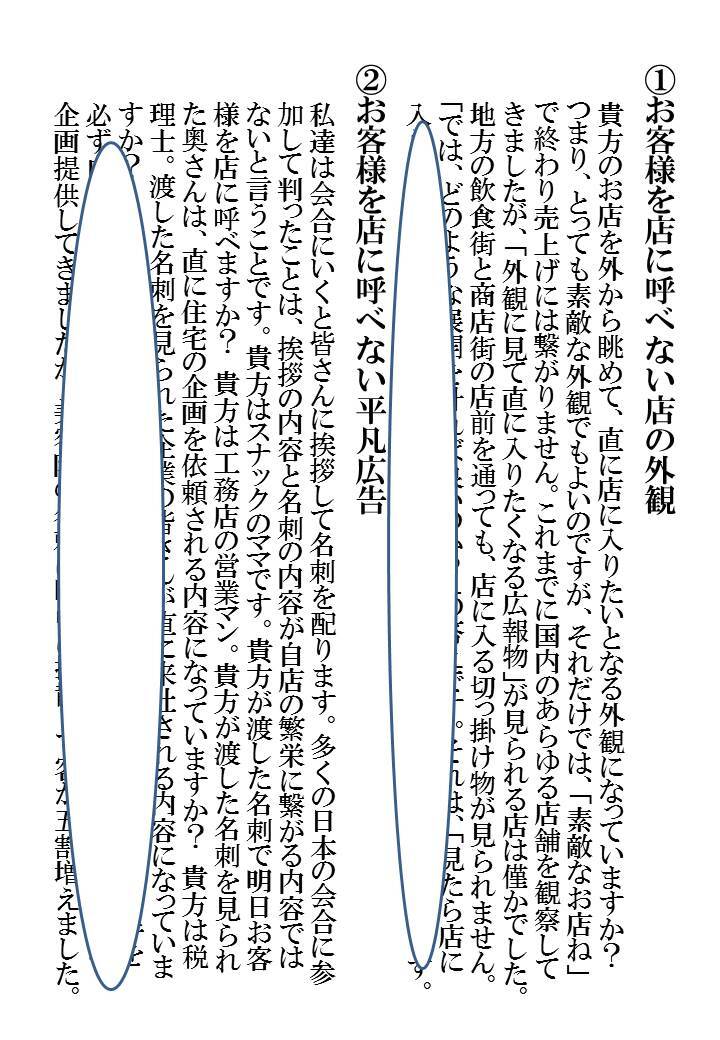 ①お客様を店に呼べない店の外観
貴方のお店を外から眺めて、直に店に入りたいとなる外観になっていますか？
つまり、とっても素敵な外観でもよいのですが、それだけでは、「素敵なお店ね」
で終わり売上げには繋がりません。これまでに国内のあらゆる店舗を観察して
きましたが、「外観に見て直に入りたくなる広報物」が見られる店は僅かでした。
地方の飲食街と商店街の店前を通っても、店に入る切っ掛け物が見られません。
「では、どのような展開を それは、「見たら店に
入 す。
②お客様を店に呼べない平凡広告
私達は会合にいくと皆さんに挨拶して名刺を配ります。多くの日本の会合に参
加して判ったことは、挨拶の内容と名刺の内容が自店の繁栄に繋がる内容では
ないと言うことです。貴方はスナックのママです。貴方が渡した名刺で明日お客
様を店に呼べますか？　貴方は工務店の営業マン。貴方が渡した名刺を見られ
た奥さんは、直に住宅の企画を依頼される内容になっていますか？　貴方は税
理士。渡した名刺を見られた企業の皆さんが直に来社される内容になっていま
すか？
必ず を
企画提供してきましたが、 五割増えました。